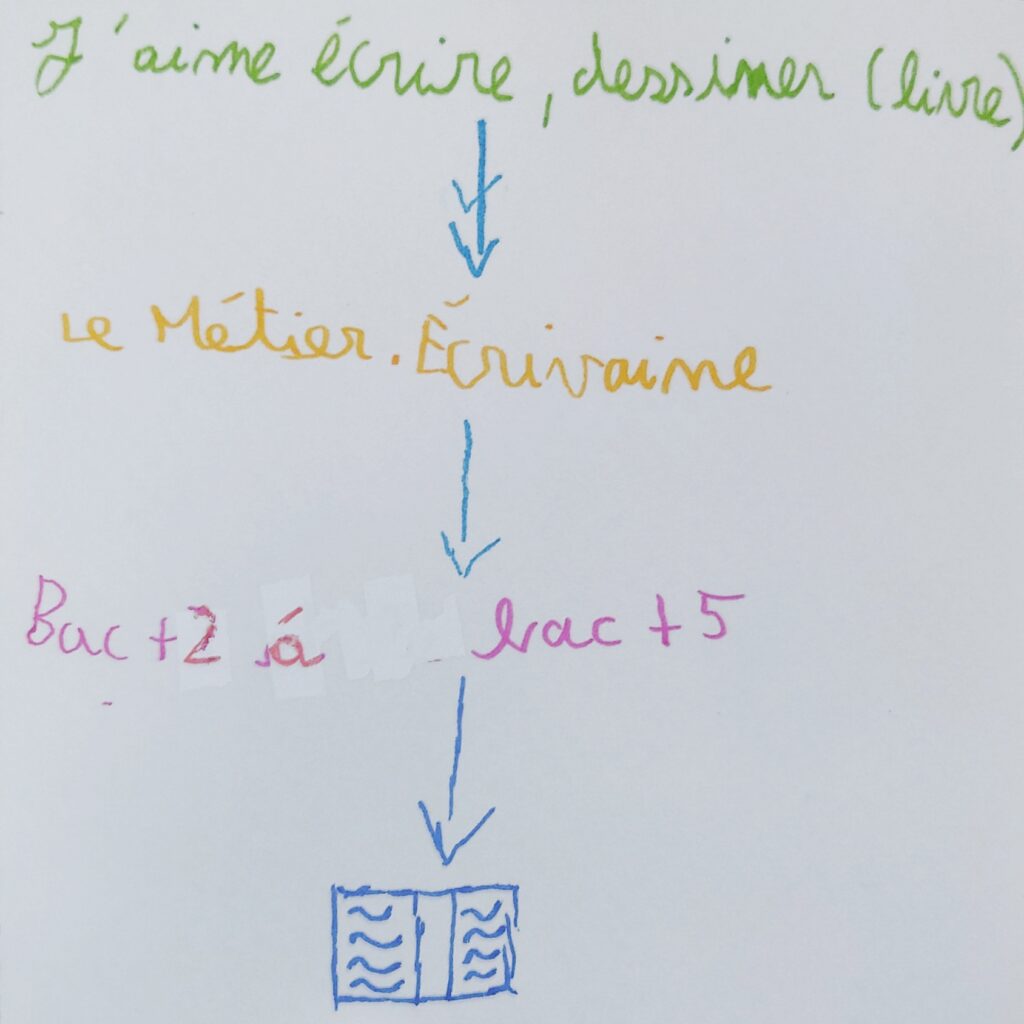 J'aime écrire, dessiner (livre)
Le Métier. Écrivaine
Bac +2 á bac +5